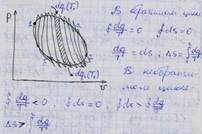 dq₁(T₁)
P
V
dq₂(T₂)
В обратимом цикле
∮ dq/T = 0 ∮ ds = 0
dq/T = ds ; ΔS = ∫ dq/T
В необратимом цикле:
∮ dq/T < 0 , ∮ ds = 0 ∫ ds > ∫ dq/T
ΔS > ∫ dq/T